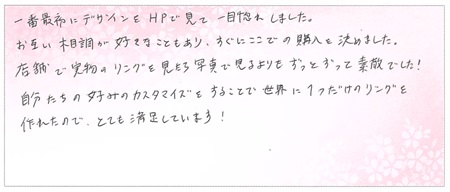 一番最初にデザインをHPで見て一目惚れしました。
お互い木目調が好きなこともあり、すぐにここでの購入を決めました。
店舗で実物のリングを見たら写真で見るよりもずっとずっと素敵でした!
自分たちの好みのカスタマイズをすることで世界に1つだけのリングを
作れたので、とても満足しています!